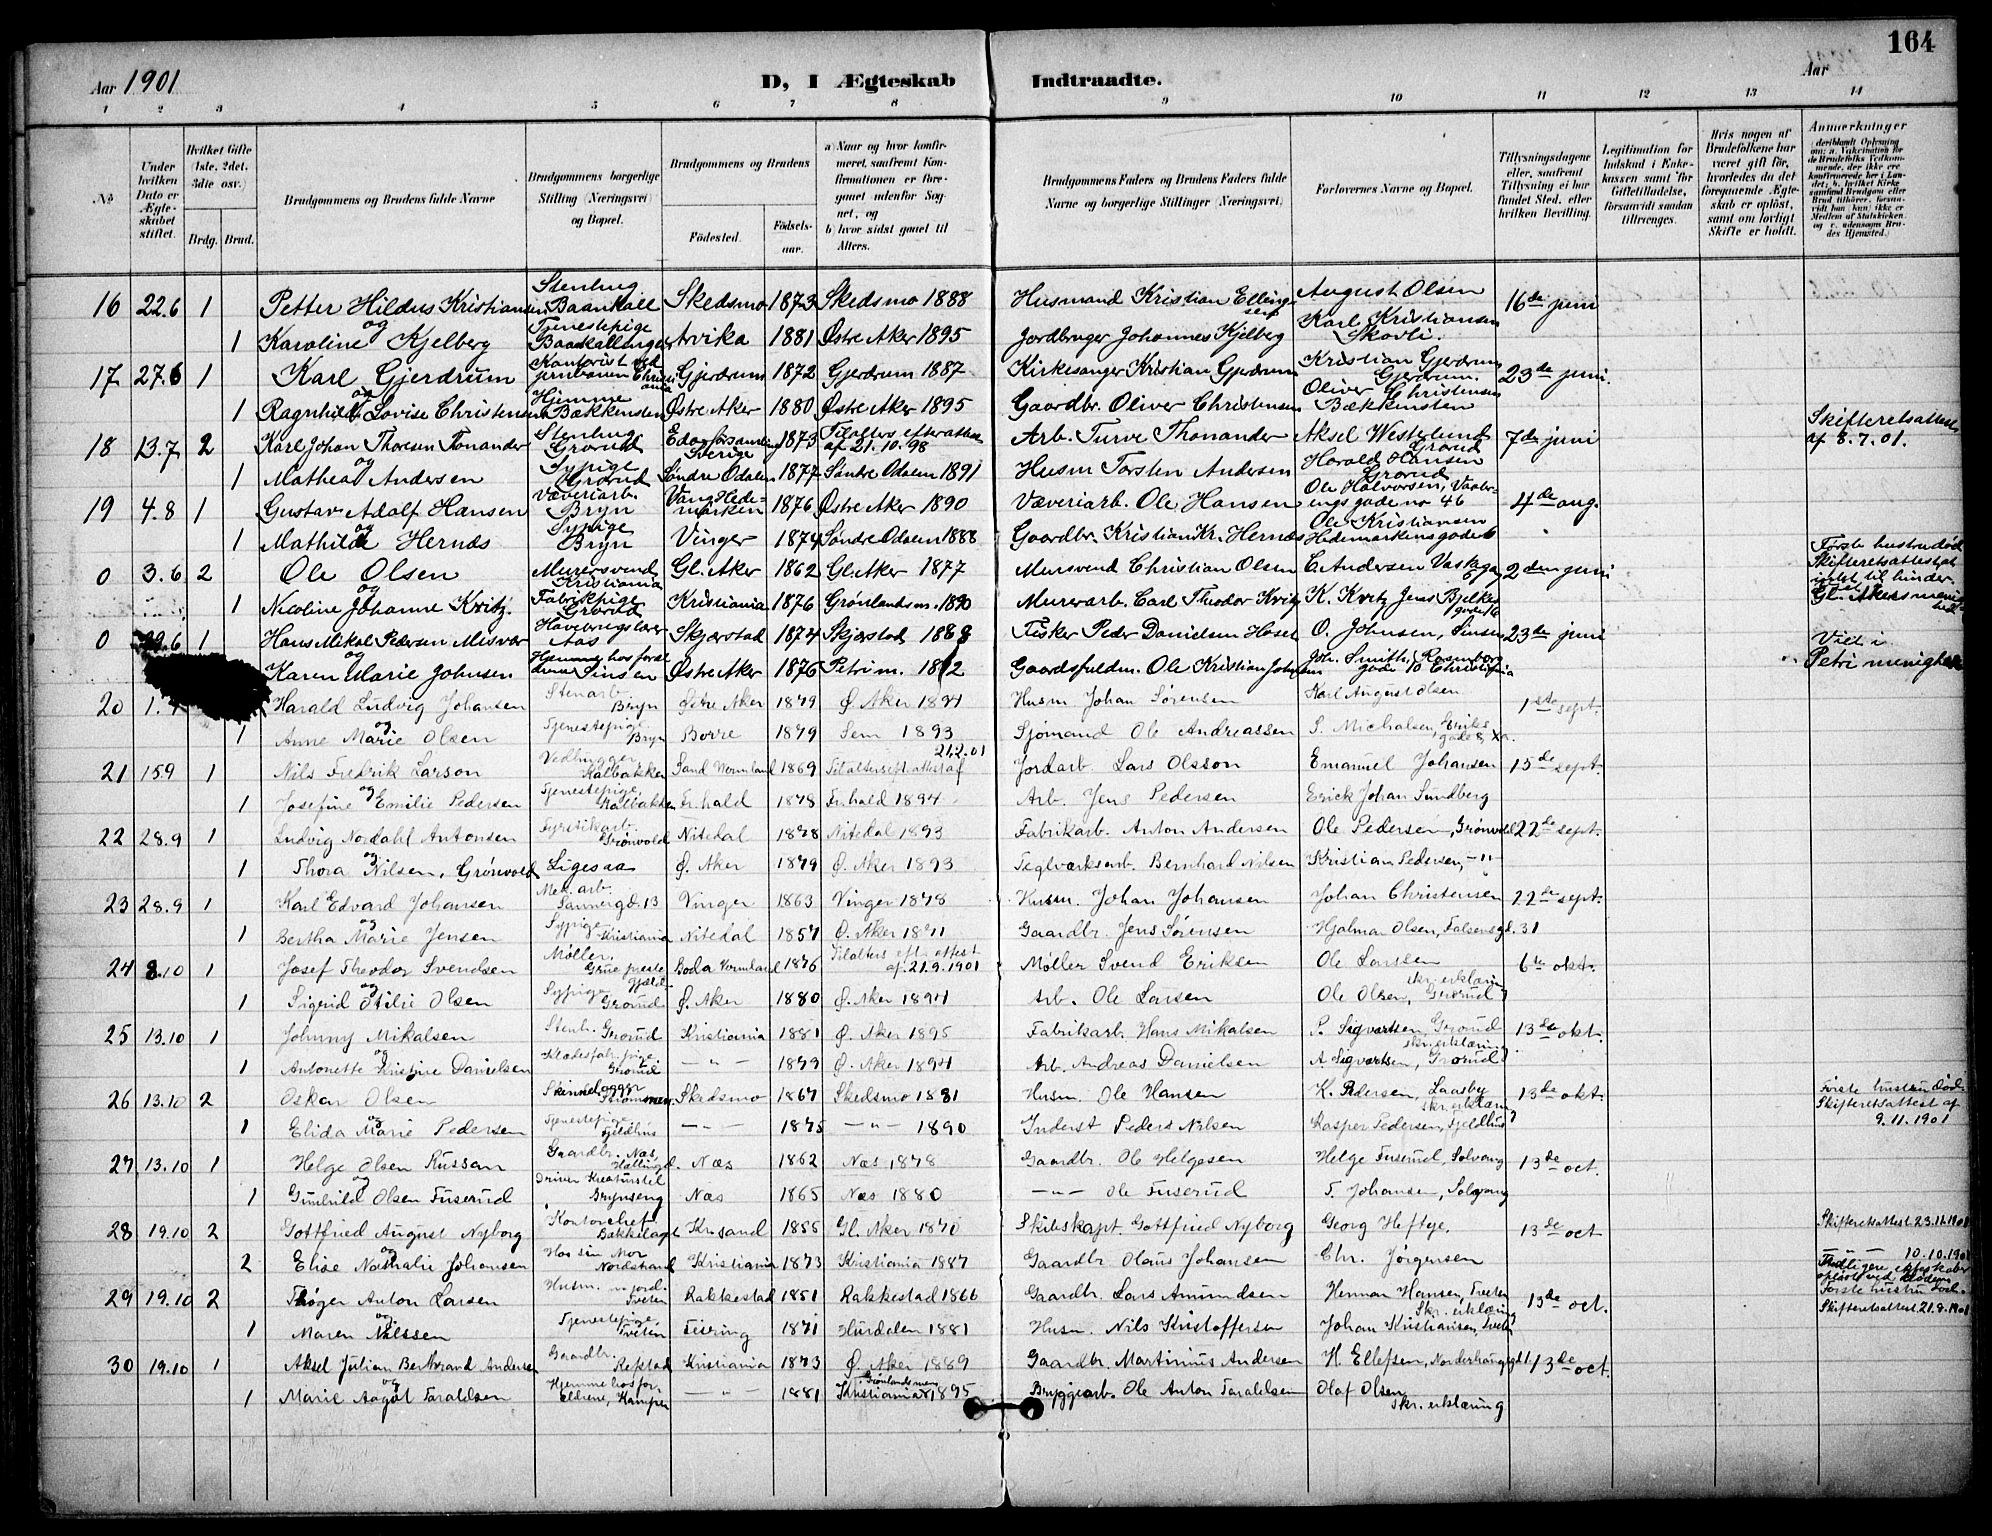 164
Aar 1901
D, I Ægteskab Indtraadte.
Aar
1 2 3 4 5 6 7 8 9 10 11 12 13 14
№
Under hvilken Dato er Ægteskabet stiftet.
Hvilket Gifte (1ste, 2det, 3die osv.)
Brdg. Brud.
Brudgommens og Brudens fulde Navne
Brudgommens borgerlige Stilling (Næringsvei) og Bopæl.
Brudgommens og Brudens
Födested. Födselsaar.
a) Naar og hvor konfirmeret, saafremt Konfirmationen er foregaaet udenfor Sognet, og b) hvor sidst gaaet til Alters.
Brudgommens Faders og Brudens Faders fulde Navne og borgerlige Stillinger (Næringsvei)
Forlovernes Navne og Bopæl.
Tillysningsdagene eller, saafremt Tillysning ei har fundet Sted, efter hvilken Bevilling.
Legitimation for Indskud i Enkekassen samt for Giftetilladelse, forsaavidt saadan tiltrænges.
Hvis nogen af Brudefolkene har været gift för, hvorledes da det foregaaende Ægteskab er oplöst, samt om lovligt Skifte er holdt.
Anmerkninger
16 22.6 1 Petter Hildus Kristiansen Stenhug. Baankall Skedsmo 1873 Skedsmo 1888 Husmand Kristian Ellingsen August Olsen 16de juni
og
1 Karoline Kjelberg Tjenestepige Arvika 1881 Østre Aker 1895 Jordbruger Johannes Kjelberg Karl Kristiansen Skovli.
17 27.6 1 Karl Gjerdrum Kontorist ved Gjerdrum 1872 Gjerdrum 1887 Kirkesanger Kristian Gjerdrum Kristian Gjerdrum Gjerdrum. 23de juni.
og
1 Ragnhild Lovise Christensen Hjemme Bækkensten Østre Aker 1880 Østre Aker 1895 Gaardbr. Oliver Christensen Oliver Christensen Bækkensten
18 13.7 2 Karl Johan Thoresen Tonander Stenhug. Grorud Sverige 1873 Tilalters efter attest af 21.10.98 Arb. Turve Thonander Aksel Westelund Grorud 7de juni Skifteretsattest af 8.7.01.
og
1 Mathea Andersen Sypige Grorud Søndre Odalen 1877 Søndre Odalen 1891 Husm Torsten Andersen Harald Hansen Grorud
19 4.8 1 Gustav Adolf Hansen Væveriarb. Bryn Vang Hedemarken 1876 Østre Aker 1890 Væveriarb. Ole Hansen Ole Halvorsen, Vaalerengsgade no 46 4de aug.
og
1 Mathilde Hernæs Sypige Bryn Vinger 1874 Søndre Odalen 1888 Gaardbr. Kristian Kr. Hernæs Ole Kristiansen Hedemarkensgade 6
0 3.6 2 Ole Olsen Murersvend Kristiania Gl. Aker 1862 Gl. Aker 1877 Mursvend Christian Olsen C. Andersen 2den juni Første hustru død Skifteretsattest
og
1 Nicoline Johanne Kvitz. Fabrikpige Grorud Kristiania 1876 Grønlands m. 1890 Murerarb. Carl Theodor Kvitz K. Kvitz Jens Bjelkes gade 16 Gl. Akers menighed
0 29.6 1 Hans Mikal Pedersen Misvær Aas Skjerstad 1874 Skjerstad 1888 Fisker Peder Danielsen O. Johnsen, Sinsen 23de juni Viet i Petri menighed
og
Karen Marie Johnsen Sinsen Østre Aker 1876 Petri m. Gaardsfuldm. Ole Kristian Johnsen Joh. Smith, Rosenborg gade 10 Christiania
20 Harald Ludvig Johansen Stenarb. Bryn Østre Aker 1879 Ø. Aker 1894 Husm Johan Sørensen Karl August Olsen 1ste sept.
og
1 Anne Marie Olsen Tjenestepige Bryn Borre 1879 Sem 1893 Sjømand Ole Andreassen S. Michalsen, Eriksgade 8, Xa.
21 15.9 1 Nils Fredrik Larson Vedhugger Kalbakken Sand Vermland 1869 Tilalters eft. attest af 21.2.01 Jordarb. Lars Olsson Emanuel Johansen 15de sept.
og
1 Josefine Emilie Pedersen Tjenestepige, Kalbakken Fr.hald 1878 Fr.hald 1894 Arb. Jens Pedersen Erick Johan Sundberg
22 28.9 1 Ludvig Nordahl Antonsen Fyrstikarb. Grønvold Nitedal 1878 Nitedal 1893 Fabrikarb. Anton Andersen Ole Pedersen, Grønvold 22de sept.
og
1 Thora Nilsen, Grønvold Ligesaa Ø. Aker 1879 Ø. Aker 1893 Teglværksarb. Bernhard Nilsen Kristian Pedersen, -"-
23 28.9 1 Karl Edvard Johansen Mek. arb. Sannergd. 13 Vinger 1863 Vinger 1878 Husm. Johan Johansen Johan Christensen 22de sept.
og
1 Bertha Marie Jensen Sypige Kristiania Nitedal 1857 Ø. Aker 1871 Gaardbr. Jens Sørensen Hjalmar Olsen, Falsensgd. 31
24 8.10 1 Josef Theodor Svendsen Møller. Boda Vermland 1876 Tilalters eft. attest af 21.9.1901 Møller Svend Eriksen Ole Larsen 6te okt.
og skr. erklæring
1 Sigrid Otilie Olsen Sypige Grorud Ø. Aker 1880 Ø. Aker 1894 Arb. Ole Larsen Ole Olsen, Grorud
25 13.10 1 Johnny Mikalsen Stenh. Grorud Kristiania 1881 Ø. Aker 1895 Fabrikarb. Hans Mikalsen P. Sigvartsen, Grorud 13de okt.
og skr. erklæring
1 Antonette Kristine Danielsen Klædesfabr. pige Grorud — " — 1879 Ø. Aker 1894 Arb. Andreas Danielsen A Sigvartsen, Grorud
26 13.10 2 Oskar Olsen Strømmen Skedsmo 1867 Skedsmo 1881 Husm. Ole Hansen K. Pedersen, Laasby 13de okt. Første hustru død. Skifteretsattest af 9.11.1901
og skr. erklæring
1 Elida Marie Pedersen Tjenestepige Fjeldhus — " — 1875 — " — 1890 Inderst Peder Nilsen Kasper Pedersen, Fjeldhus
27 13.10 1 Helge Olsen Russan Gaardbr. Næs, Hallingd. Næs 1862 Næs 1878 Gaardbr. Ole Helgesen Helge Fuserud, Solvang 13de oct.
og
1 Gunhild Olsen Fuserud Driver Kreaturstel Brynseng Næs 1865 Næs 1880 — " — Ole Fuserud T. Johansen, Solvang
28 19.10 2 Gottfried August Nyborg Kontorchef. Bækkelaget Kr.sand 1855 Gl. Aker 1870 Skibskapt. Gottfried Nyborg Georg Heftye. 13de oct Skifteretsattest 23.11.1901
og
2 Elise Nathalie Johansen Hos sin Mor Nordstrand Kristiania 1873 Kristiania 1887 Gaardbr Olaus Johansen Chr. Jørgensen — " — 10.10.1901 Tidligere ægteskaber opløst ved døden.
29 19.10 2 Trøger Anton Larsen Husm. Tveten Rakkestad 1851 Rakkestad 1866 Gaardbr. Lars Amundsen Herman Hansen, Tveten 13de oct. Første hustru død. Skifteretsattest 21.8.1901
og Skr. erklæring
1 Maren Nilssen Tjenestepige, Tveten Feiring 1871 Hurdalen 1881 Husm. Nils Kristoffersen Johan Kristiansen, Tveten
30 19.10 1 Aksel Julian Bertrand Andersen Gaardbr. Refstad Kristiania 1873 Ø. Aker 1889 Gaardbr. Martinius Andersen H. Ellefsen, 13de oct.
og
1 Marie Aagot Faraldsen Hjemme hos for Eldrene, Kampen — " — 1881 Grønlands men. Kristiania 1895 Bryggiarb. Ole Anton Faraldsen Olaf Olsen skr. erklæring